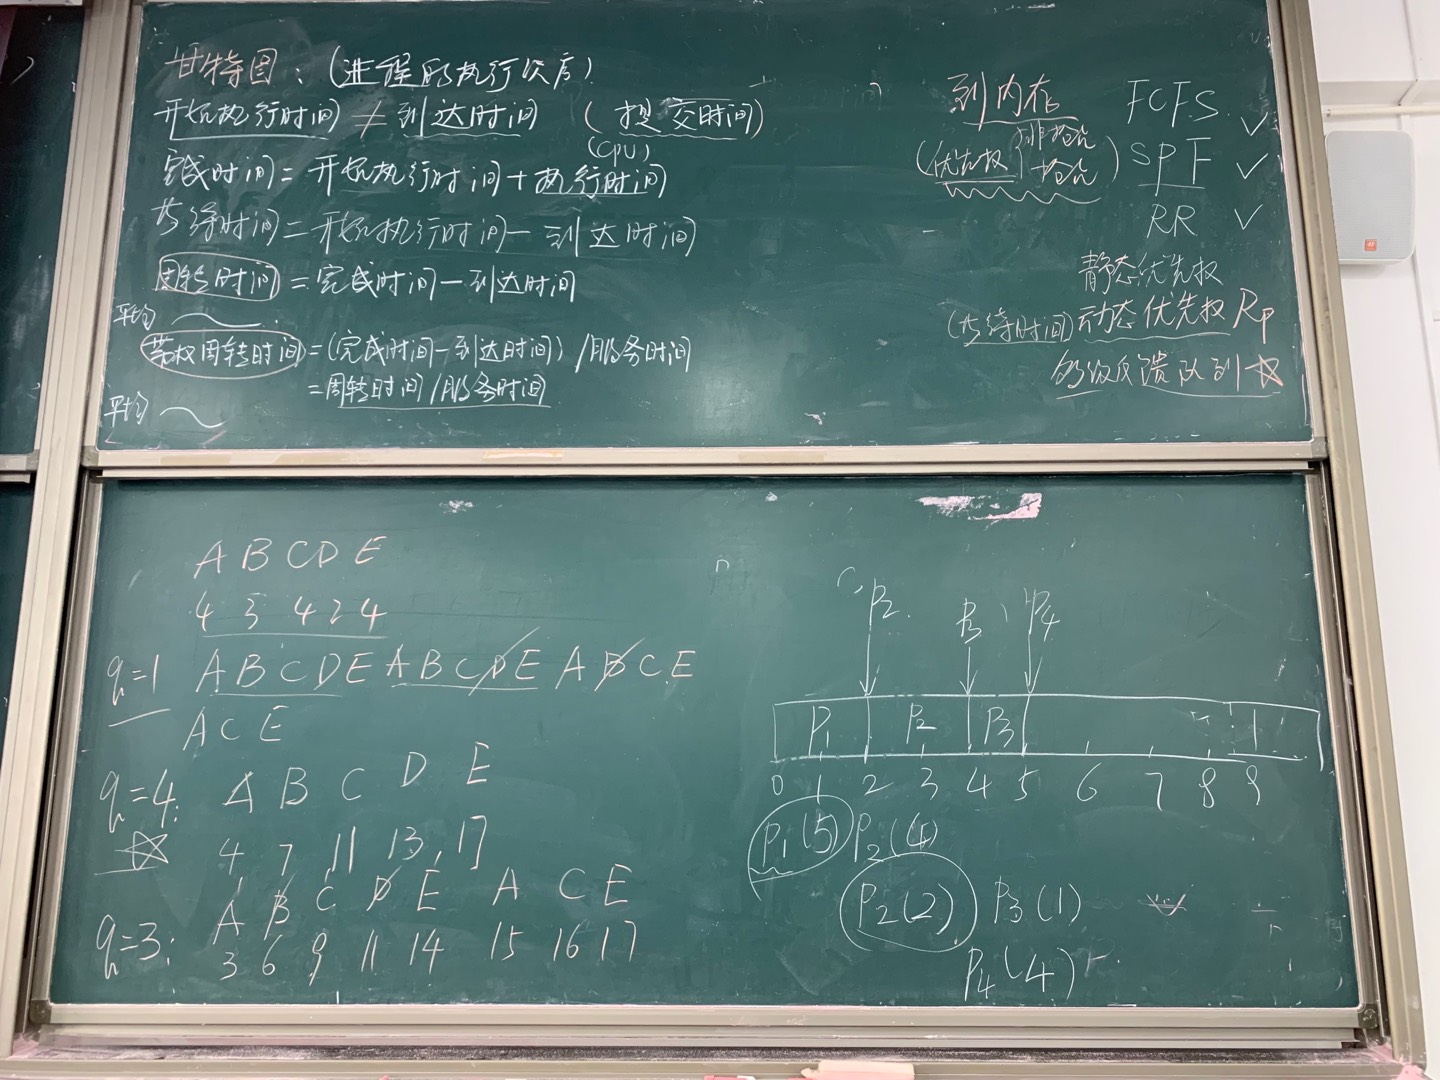 甘特图：(进程的执行次序)
开始执行时间 ≠ 到达时间 (提交时间)
(CPU)
完成时间 = 开始执行时间 + 执行时间
等待时间 = 开始执行时间 - 到达时间
周转时间 = 完成时间 - 到达时间
平均
带权周转时间 = (完成时间 - 到达时间) / 服务时间
= 周转时间 / 服务时间
平均
到内存
(优先权 非抢占 抢占)
FCFS ✓
SPF ✓
RR ✓
静态优先权
(等待时间) 动态优先权 Rp
多级反馈队列 ☆
A B C D E
4 3 4 2 4
q=1 A B C D E A B C D E A B C E
A C E
q=4: A B C D E
☆ 4 7 11 13, 17
q=3: A B C D E A C E
3 6 9 11 14 15 16 17
P2 P3 P4
P1 P2 P3
0 1 2 3 4 5 6 7 8 9
P1(5) P2(4)
P2(2) P3(1)
P4(4)